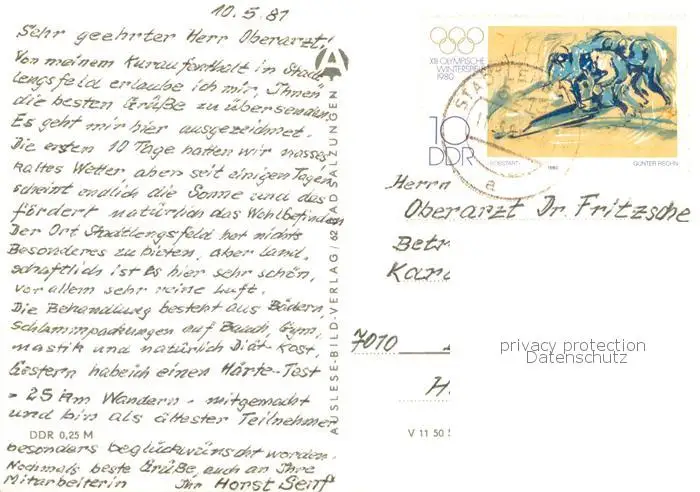 10.5.81
Sehr geehrter Herr Oberarzt!
Von meinem Kuraufenthalt in Stadt-
lengsfeld erlaube ich mir, Ihnen
die besten Grüße zu übersenden.
Es geht mir hier ausgezeichnet.
Die ersten 10 Tage hatten wir nasses
kaltes Wetter, aber seit einigen Tagen
scheint endlich die Sonne und das
fördert natürlich das Wohlbefinden
Der Ort Stadtlengsfeld hat nichts
Besonderes zu bieten, aber land,
schaftlich ist es hier sehr schön,
vor allem sehr reine Luft.
Die Behandlung besteht aus Bädern,
Schlammpackungen auf Bauch, Gym,
nastik und natürlich Diät-Kost,
Gestern habe ich einen Härte-Test
- 25 km Wandern - mitgemacht
und bin als ältester Teilnehmer
besonders beglückwünscht worden.
Nochmals beste Grüße, auch an Ihre
Mitarbeiterin Ihr Horst
DDR 0,25 M
AUSLESE-BILD-VERLAG / 62 BAD SALZUNGEN
A
XIII OLYMPISCHE
WINTERSPIELE
1980
10
DDR
1980
GÜNTER RECHN
a
Herrn
Oberarzt Dr. Fritzsche
Betr
7010
H
V 11 50
privacy protection
Datenschutz